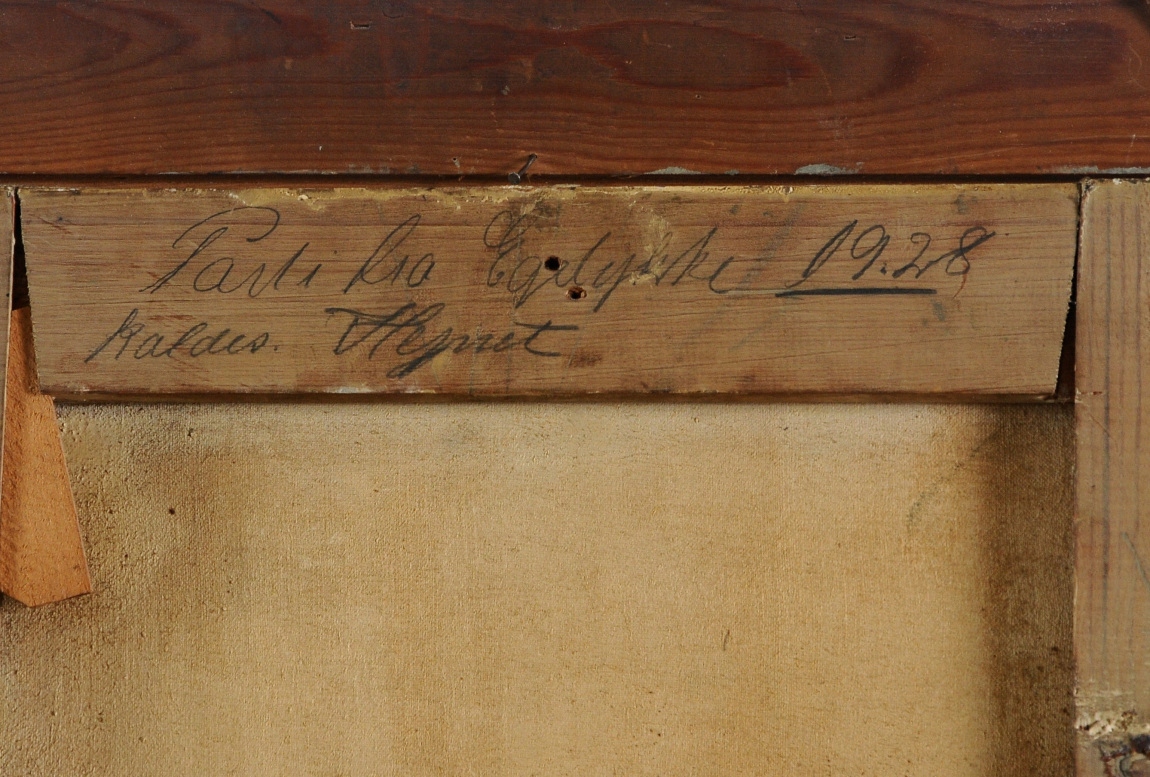 Parti fra Egelykke 1928
Kaldes. Hegnet